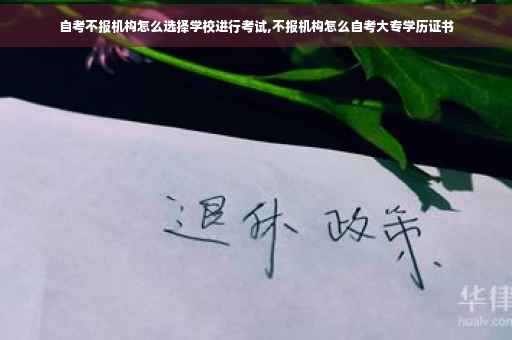 自考不报机构怎么选择学校进行考试,不报机构怎么自考大专学历证书
退休 政策
华律
hualv.com